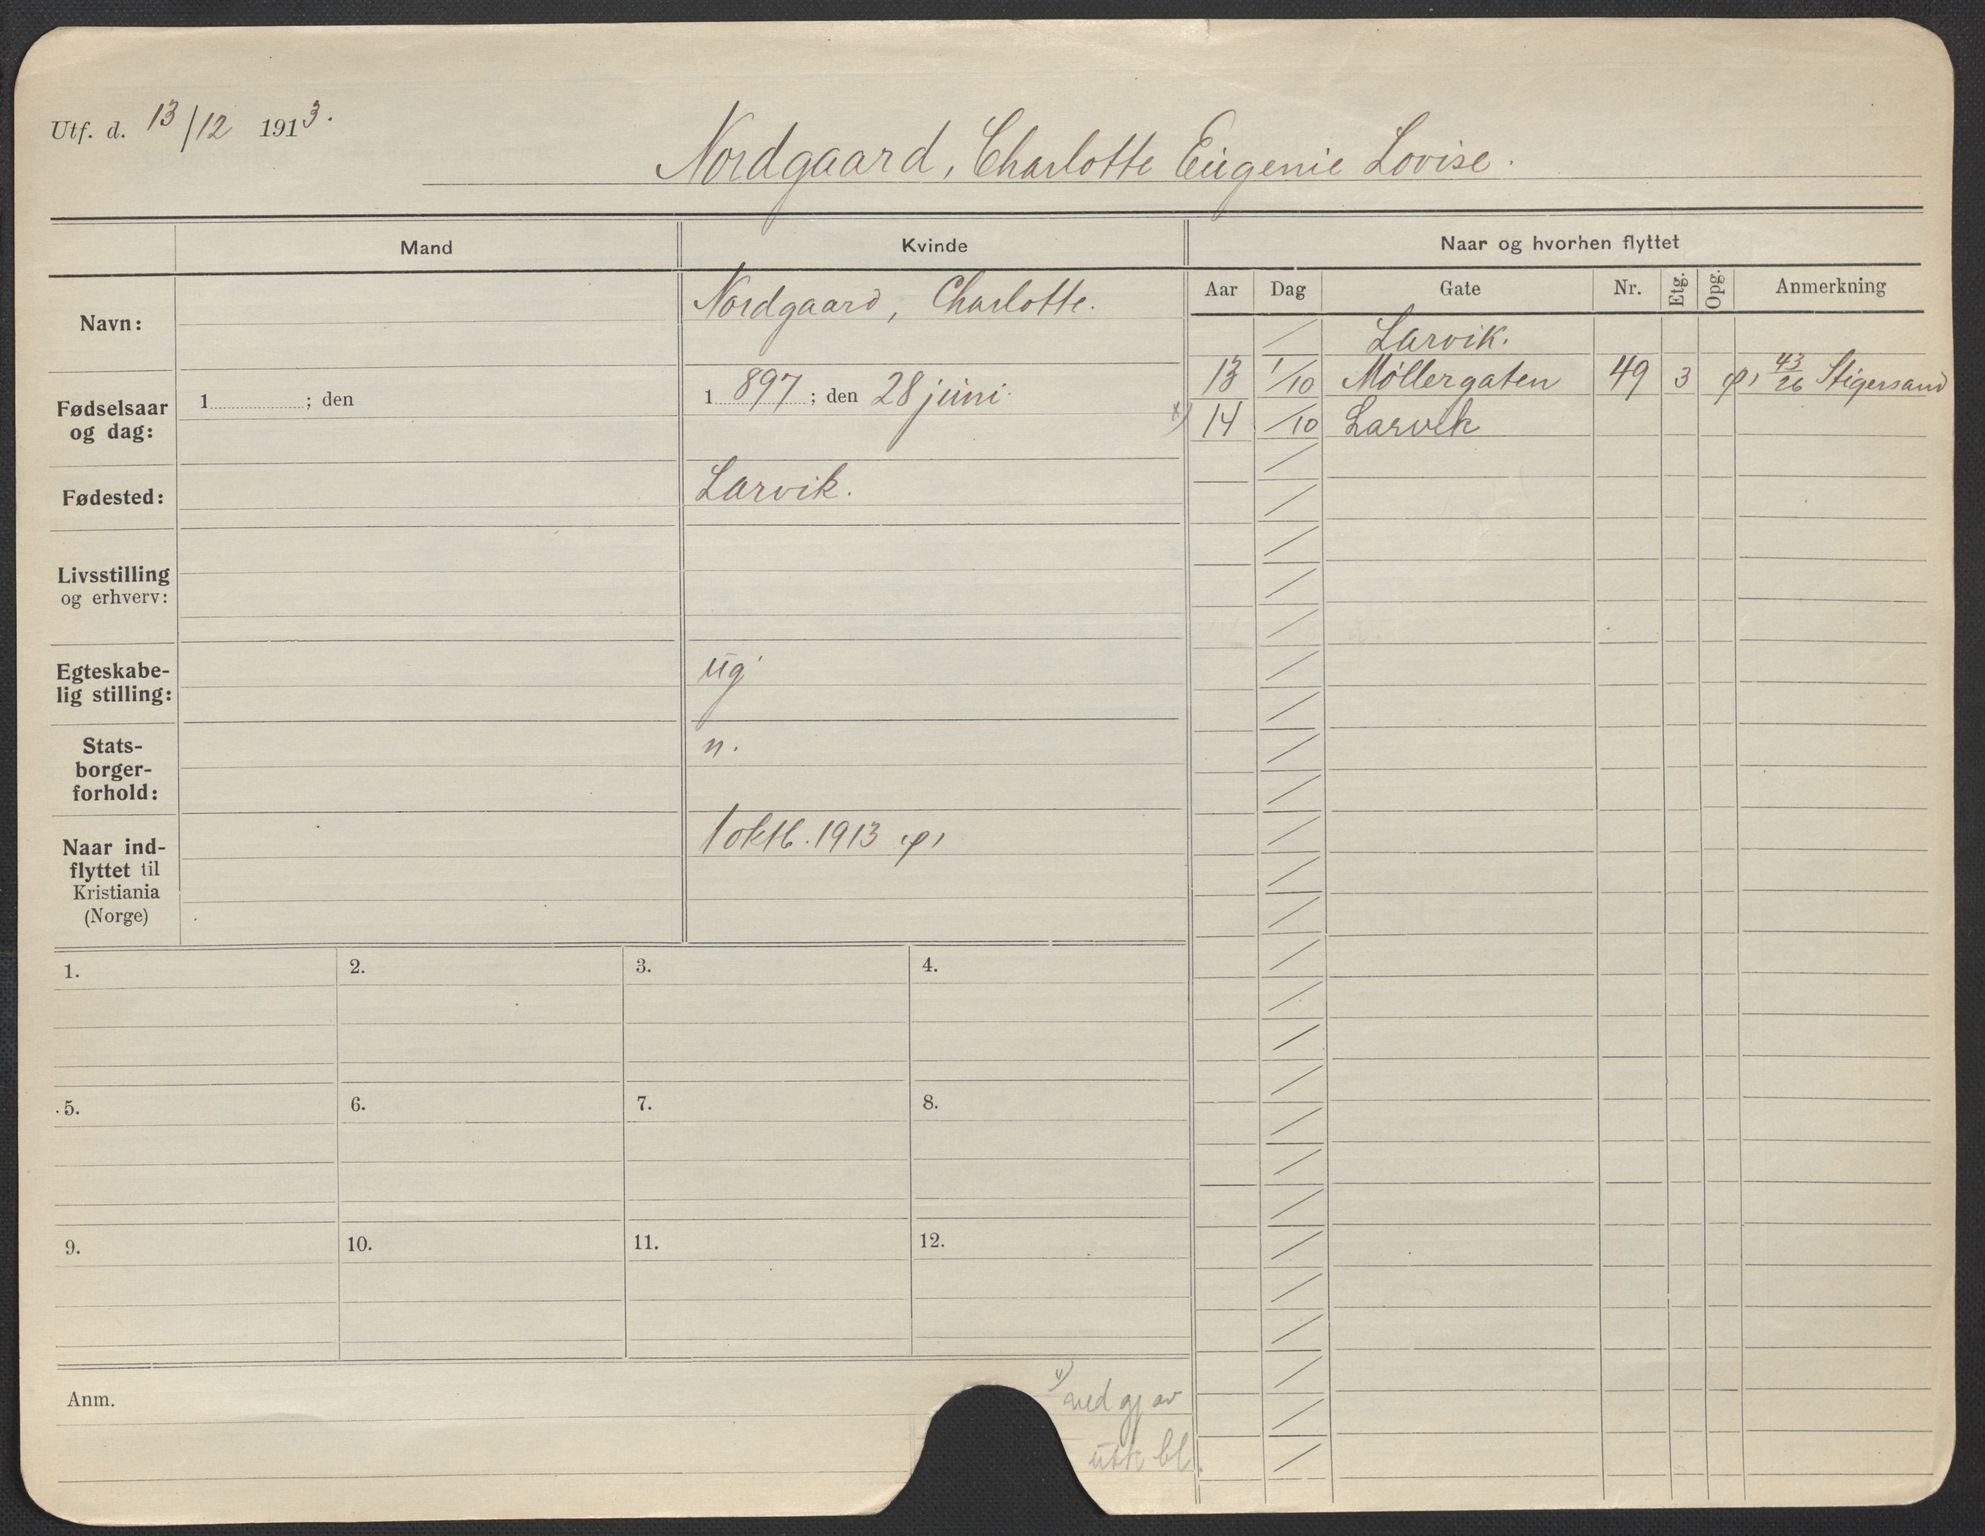 Utf. d. 13/12 1913.
Nordgaard, Charlotte Eugenie Lovise.
Mand
Kvinde
Naar og hvorhen flyttet
Navn:
Nordgaard, Charlotte.
Fødselsaar
og dag:
1 ; den
1 897 ; den 28 juni
Fødested:
Larvik.
Livsstilling
og erhverv:
Egteskabe-
lig stilling:
ug
Stats-
borger-
forhold:
n.
Naar ind-
flyttet til
Kristiania
(Norge)
1 oktb. 1913
Aar Dag Gate Nr. Etg. Opg. Anmerkning
/ Larvik.
13 1/10 Møllergaten 49 3 43/26 Stigersand
x) 14 /10 Larvik
1. 2. 3. 4.
5. 6. 7. 8.
9. 10. 11. 12.
Anm.
ved gj av
utk bl.